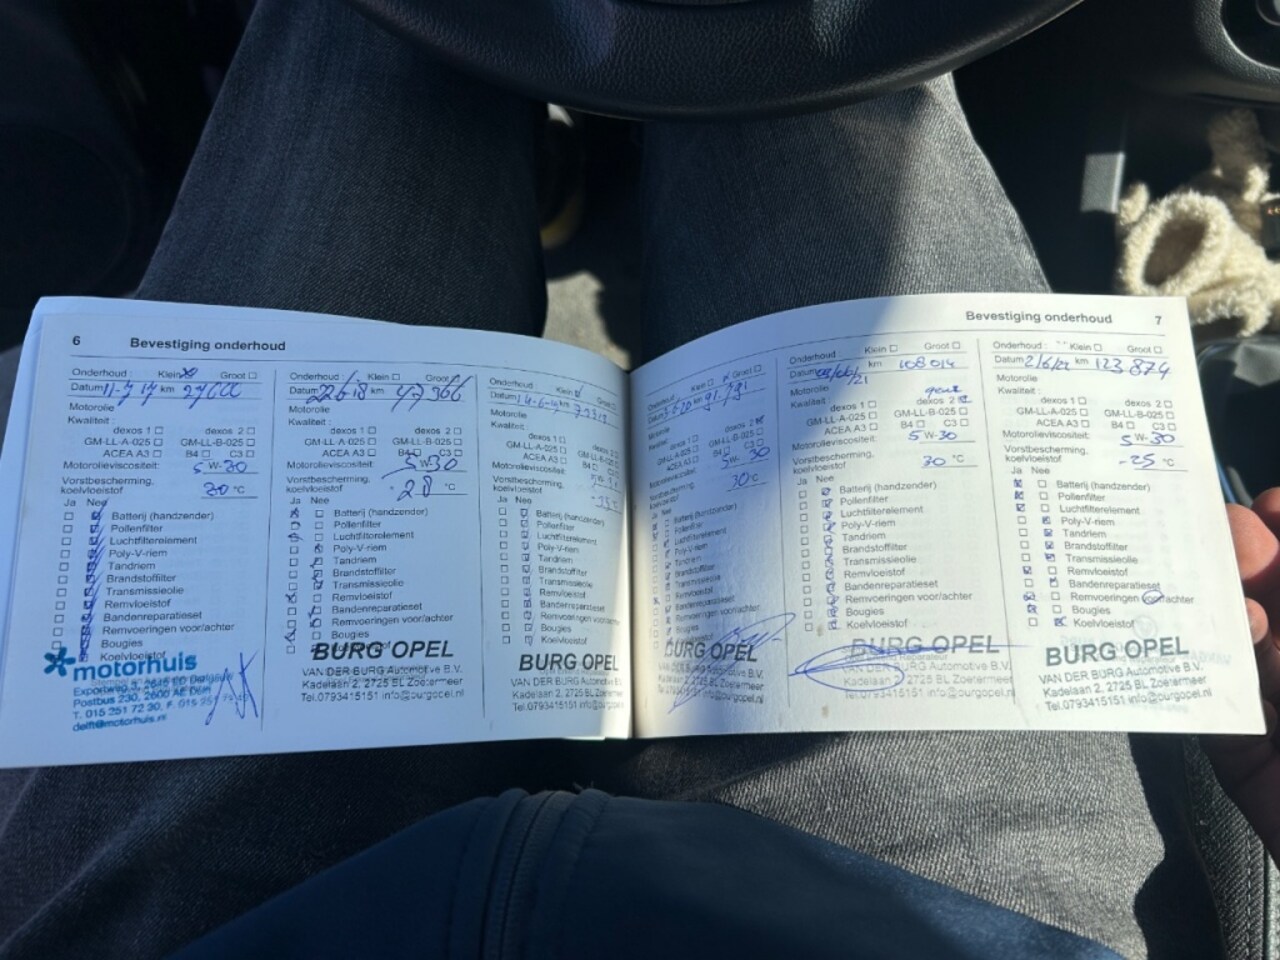 6 Bevestiging onderhoud
Onderhoud : Klein Groot
Datum 11-7 17 km 27000
Motorolie
Kwaliteit :
dexos 1 dexos 2
GM-LL-A-025 GM-LL-B-025
ACEA A3 B4 C3
Motorolieviscositeit: 5 W-30
Vorstbescherming,
koelvloeistof °C
Ja Nee
Batterij (handzender)
Pollenfilter
Luchtfilterelement
Poly-V-riem
Tandriem
Brandstoffilter
Transmissieolie
Remvloeistof
Bandenreparatieset
Remvoeringen voor/achter
Bougies
Koelvloeistof
motorhuis
Postbus 230, 2600 AE Delft
delft@motorhuis.nl
Onderhoud : Klein Groot
Datum 22/6/18 km 47 966
Motorolie
Kwaliteit :
dexos 1 dexos 2
GM-LL-A-025 GM-LL-B-025
ACEA A3 B4 C3
Motorolieviscositeit: 5W-30
Vorstbescherming,
koelvloeistof - 28 °C
Ja Nee
Batterij (handzender)
Pollenfilter
Luchtfilterelement
Poly-V-riem
Tandriem
Brandstoffilter
Transmissieolie
Remvloeistof
Bandenreparatieset
Remvoeringen voor/achter
Bougies
BURG OPEL
VAN DER BURG Automotive B.V.
Kadelaan 2, 2725 BL Zoetermeer
Tel.0793415151 info@burgopel.nl
Onderhoud : Klein Groot
Datum km
Motorolie
Kwaliteit :
dexos 1 dexos 2
GM-LL-A-025 GM-LL-B-025
ACEA A3 B4 C3
Motorolieviscositeit:
Vorstbescherming,
koelvloeistof
Ja Nee
Batterij (handzender)
Pollenfilter
Luchtfilterelement
Poly-V-riem
Tandriem
Brandstoffilter
Transmissieolie
Remvloeistof
Bandenreparatieset
Remvoeringen voor/achter
Bougies
Koelvloeistof
BURG OPEL
VAN DER BURG Automotive B.V.
Kadelaan 2, 2725 BL Zoetermeer
Tel.0793415151 info@burgopel.nl
Bevestiging onderhoud 7
Onderhoud : Klein Groot
Datum km
Motorolie
Kwaliteit :
dexos 1 dexos 2
GM-LL-A-025 GM-LL-B-025
ACEA A3 B4 C3
Motorolieviscositeit: 5 W- 30
Vorstbescherming,
koelvloeistof 30 °C
Ja Nee
Batterij (handzender)
Pollenfilter
Luchtfilterelement
Poly-V-riem
Tandriem
Brandstoffilter
Transmissieolie
Remvloeistof
Bandenreparatieset
Remvoeringen voor/achter
Bougies
Koelvloeistof
BURG OPEL
VAN DER BURG Automotive B.V.
Kadelaan 2, 2725 BL Zoetermeer
Tel.0793415151 info@burgopel.nl
Onderhoud : Klein Groot
Datum km 108 014
Motorolie
Kwaliteit :
dexos 1 dexos 2
GM-LL-A-025 GM-LL-B-025
ACEA A3 B4 C3
Motorolieviscositeit: 5 W-30
Vorstbescherming,
koelvloeistof 30 °C
Ja Nee
Batterij (handzender)
Pollenfilter
Luchtfilterelement
Poly-V-riem
Tandriem
Brandstoffilter
Transmissieolie
Remvloeistof
Bandenreparatieset
Remvoeringen voor/achter
Bougies
Koelvloeistof
BURG OPEL
VAN DER BURG Automotive B.V.
Kadelaan 2, 2725 BL Zoetermeer
Tel.0793415151 info@burgopel.nl
Onderhoud : Klein Groot
Datum 2/6/22 km 123 874
Motorolie
Kwaliteit :
dexos 1 dexos 2
GM-LL-A-025 GM-LL-B-025
ACEA A3 B4 C3
Motorolieviscositeit: 5 W-30
Vorstbescherming,
koelvloeistof -25 °C
Ja Nee
Batterij (handzender)
Pollenfilter
Luchtfilterelement
Poly-V-riem
Tandriem
Brandstoffilter
Transmissieolie
Remvloeistof
Bandenreparatieset
Remvoeringen voor/achter
Bougies
Koelvloeistof
BURG OPEL
VAN DER BURG Automotive B.V.
Kadelaan 2, 2725 BL Zoetermeer
Tel.0793415151 info@burgopel.nl